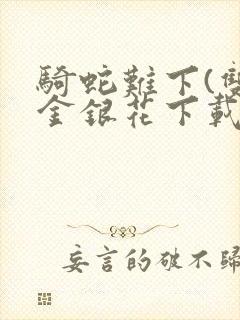 騎蛇難下(雙
金銀花下載
妄言的破不歸